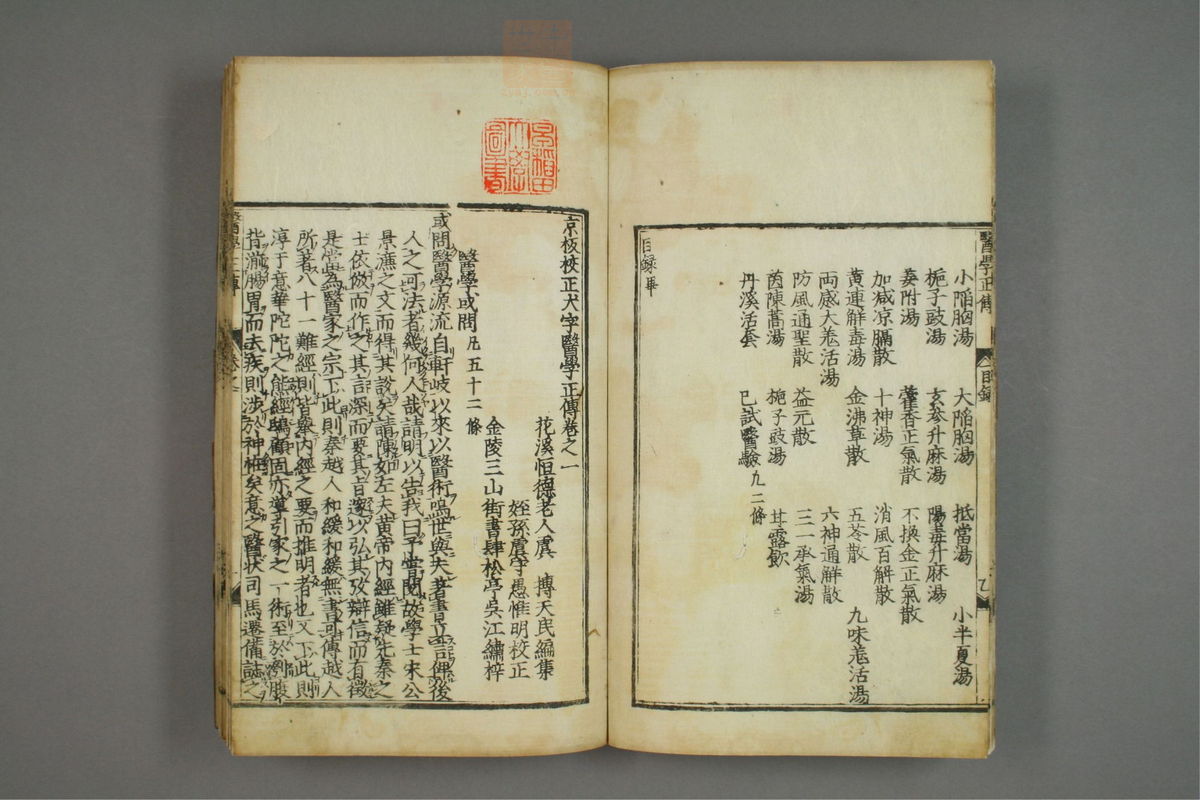 醫學正傳
目録
小陷胸湯 大陷胸湯 抵當湯 小半夏湯
梔子豉湯 玄參升麻湯 陽毒升麻湯
姜附湯 藿香正氣散 不換金正氣散
加减凉膈散 十神湯 消風百解散
黄連解毒湯 金沸草散 五苓散 九味羌活湯
両感大羌活湯 六神通解散
防風通聖散 益元散 三一承氣湯
茵陳蒿湯 梔子豉湯 甘露飲
丹溪活套 已試醫驗九二條
目録畢
京板校正大字醫學正傳卷之一
花溪恒德老人虞 摶天民編集
姪孫虞學愚惟明校正
金陵三山街書肆松亭吳江繡梓
醫學或問 凡五十二條
或問醫學源流自軒岐以來以醫術鳴世與夫著書立言俾後
人之可法者幾何人哉請明以告我曰予嘗閱故學士宋公
景濂之文而得其說矣請陳如左夫黄帝内經雖疑先秦之
士依倣而作之其言深而要其旨邃以弘其攷辯信而有徵
是當為醫家之宗下此則秦越人和緩和緩無書可傳越人
所著八十一難經則皆舉内經之要而推明者也又下此則
淳于意華陀陀之熊經鴟顧固亦導引家之一術至於刳腹
背湔腸胃而去疾則涉於神怪矣意之醫狀司馬遷備誌之
醫學正傳
卷之一